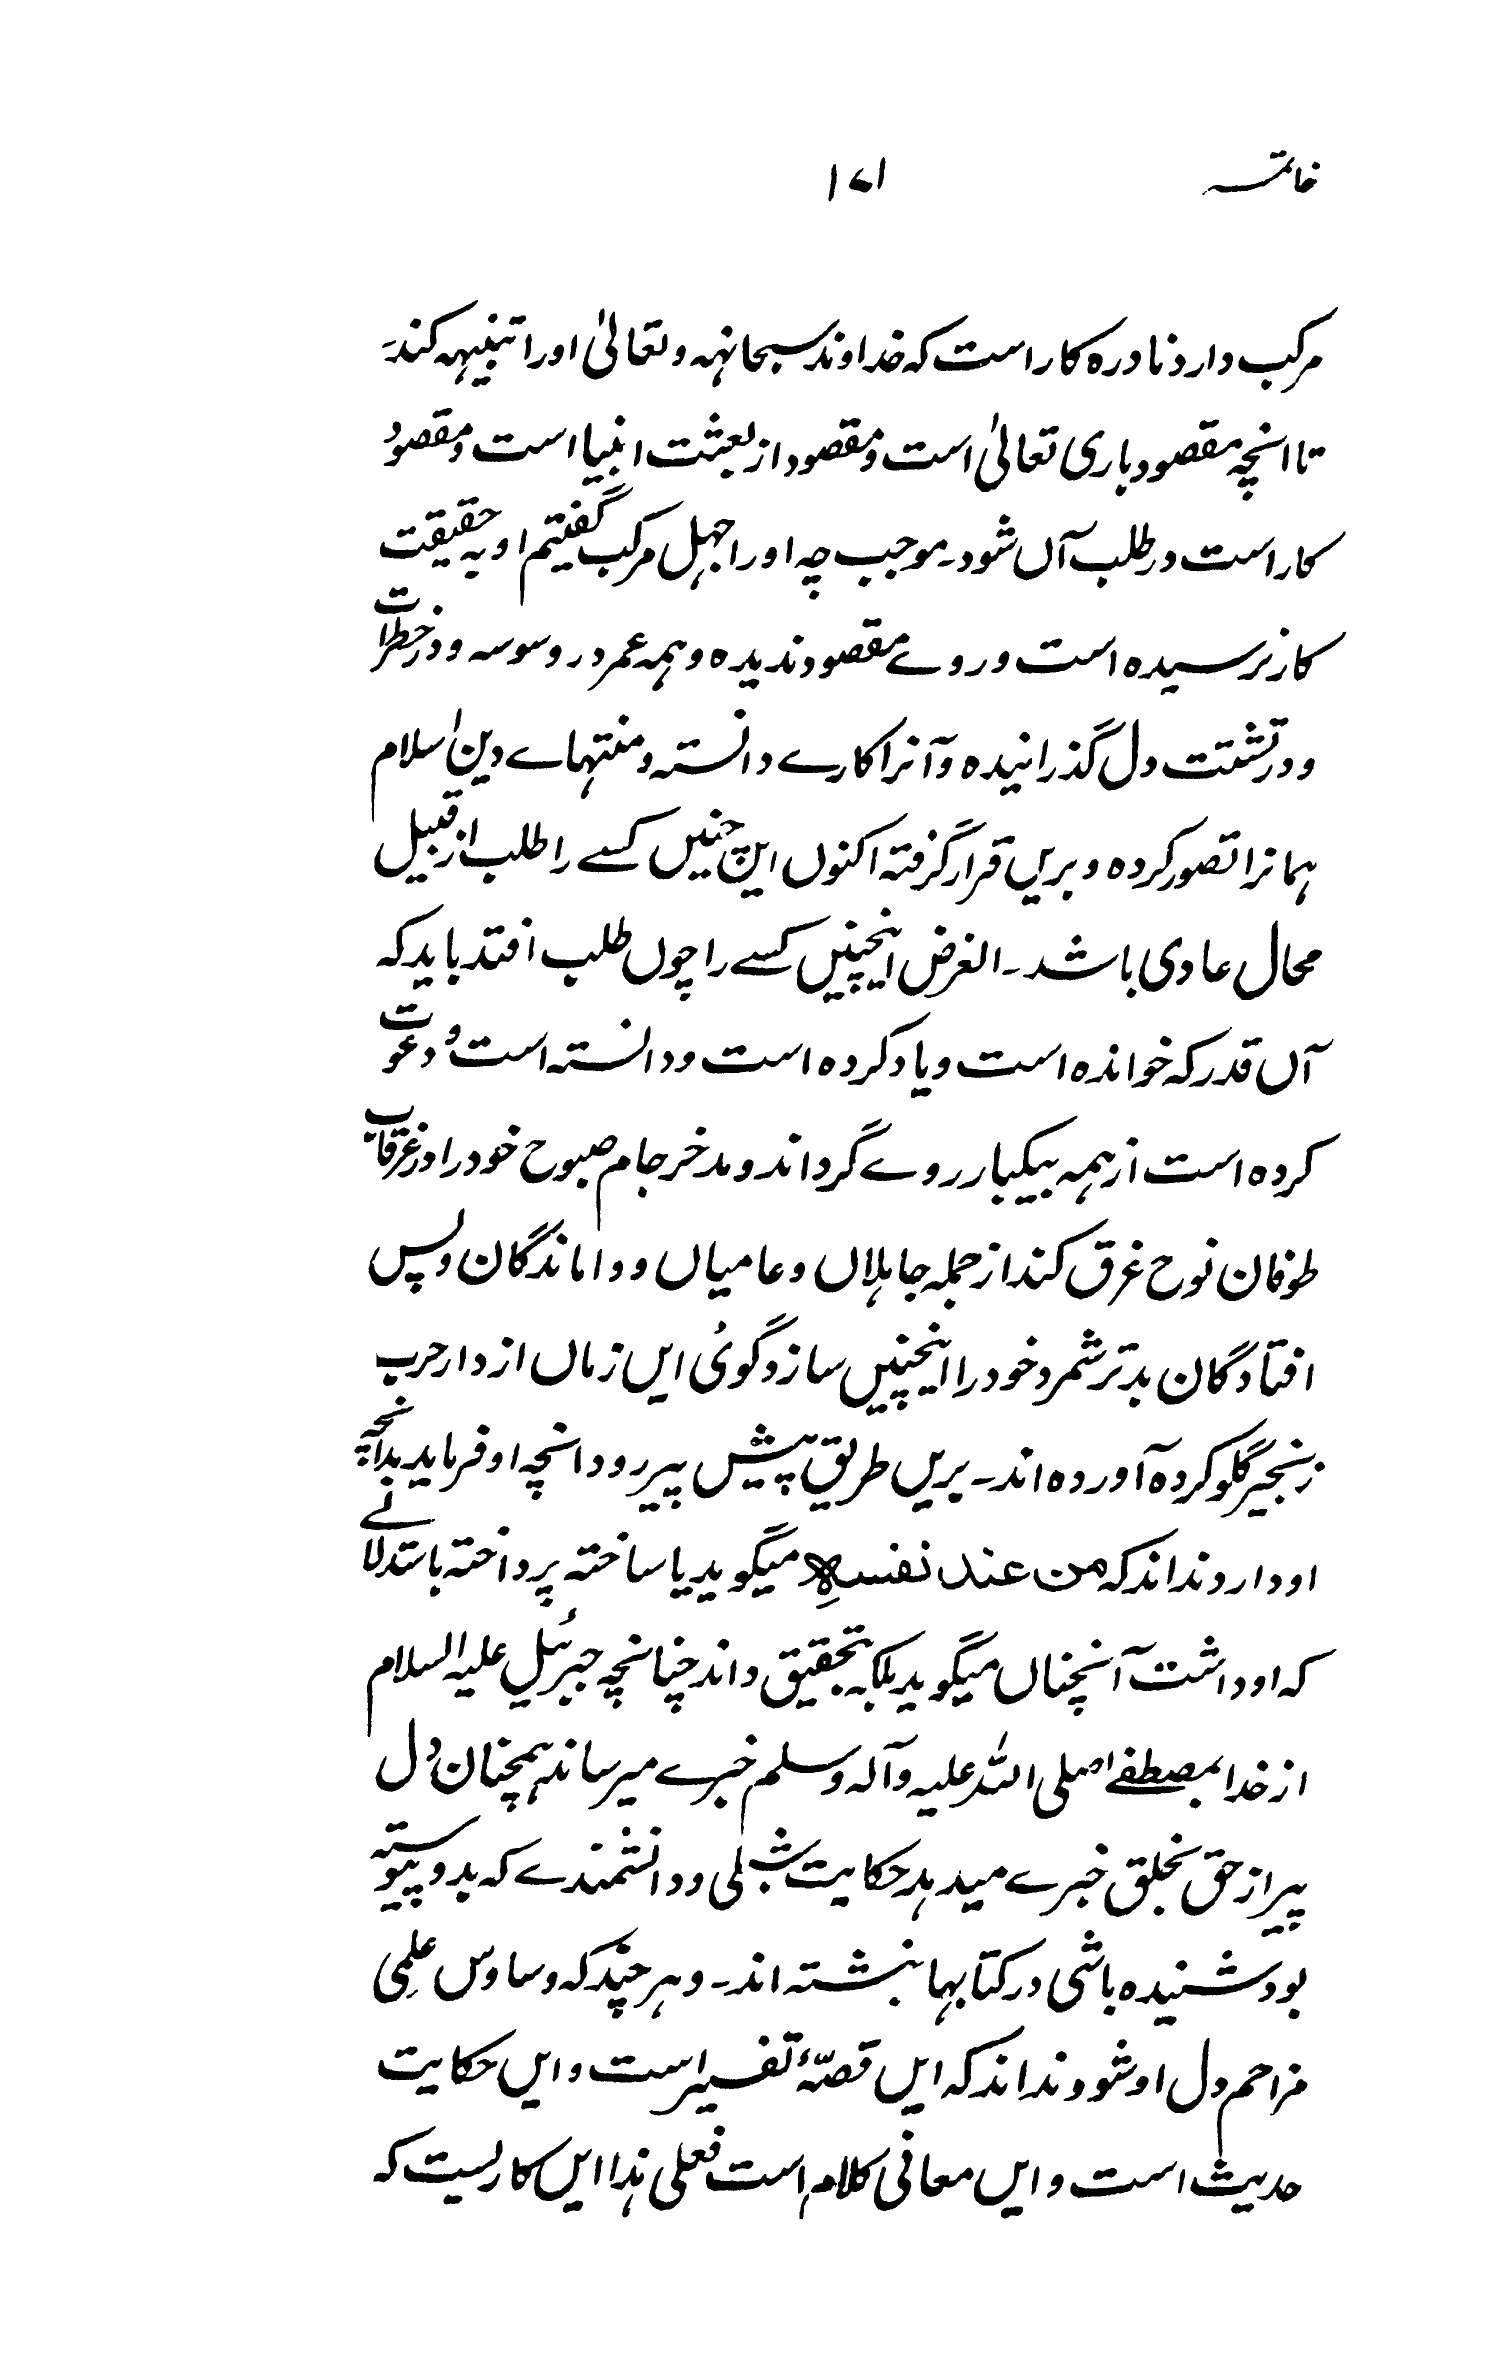 خاتمہ ۱۷۱
مرکب دارد نادرہ کار است کہ خداوند سبحانہ وتعالیٰ اورا تنبیہہ کند
تا انچہ مقصود باری تعالیٰ است و مقصود از بعثت انبیا است و مقصود
کار است در طلب آں شود۔ موجب چہ اورا جہل مرکب گفتیم او بہ حقیقت
کار نرسیدہ است و روے مقصود ندیدہ وہمہ عمر در وسوسہ و در خطرات
و در تشتت دل گذرانیدہ و آنرا کارے دانستہ و منتہاے دین اسلام
ہمانرا تصور کردہ و بریں قرار گرفتہ اکنوں ایں چنیں کسے را طلب از قبیل
محال عادی باشد۔ الغرض اینچنیں کسے را چوں طلب افتد باید کہ
آں قدر کہ خواندہ است و یاد کردہ است و دانستہ است و دعوت
کردہ است از ہمہ بیکبار روے گرداند و مدخر جام صبوح خود را در غرقاب
طوفان نوح غرق کند از جملہ جاہلاں و عامیاں و واماندگان و پس
افتادگان بدتر شمرد خود را اینچنیں سازد گوئی ایں زماں از دار حرب
زنجیر گلو کردہ آوردہ اند۔ بریں طریق پیش پیر رود انچہ او فرماید بدانچہ
او دارد نداند کہ من عند نفسہٖ میگوید یا ساختہ پرداختہ باستدلالے
کہ او داشت آنچناں میگوید بلکہ بتحقیق داند چنانچہ جبرئیل علیہ السلام
از خدا بمصطفےٰ صلی اللہ علیہ وآلہ وسلم خبرے میرساند ہمچنان دل
پیر از حق بخلق خبرے میدہد حکایت شبلی و دانشمندے کہ بدو پیوستہ
بود شنیدہ باشی در کتابہا نبشتہ اند۔ و ہر چند کہ وساوس علمی
مزاحم دل او شود نداند کہ ایں قصّۂ تفسیر است و ایں حکایت
حدیث است و ایں معانی کلام است فعلی ہذا ایں کاریست کہ